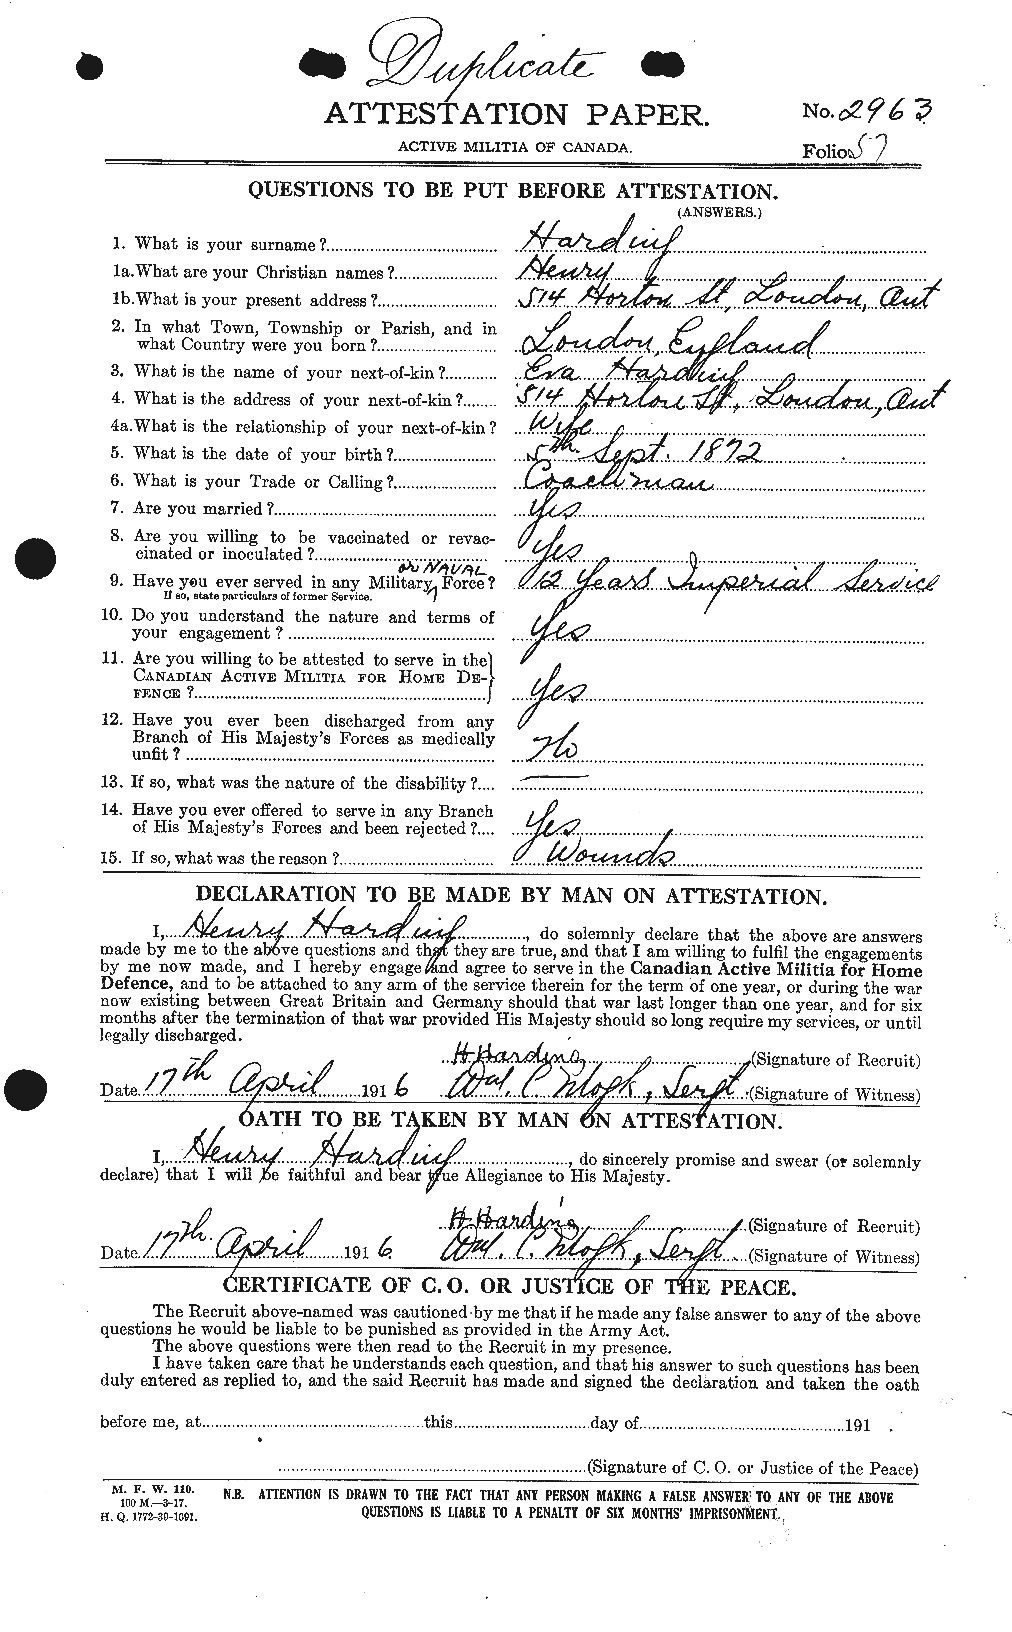 Duplicate
ATTESTATION PAPER.
No. 2963
ACTIVE MILITIA OF CANADA.
Folio. 57
QUESTIONS TO BE PUT BEFORE ATTESTATION.
(ANSWERS.)
1. What is your surname? Harding
1a. What are your Christian names? Henry
1b. What is your present address? 514 Horton St, London, Ont
2. In what Town, Township or Parish, and in
what Country were you born? London, England
3. What is the name of your next-of-kin? Eva Harding
4. What is the address of your next-of-kin? 514 Horton St, London, Ont
4a. What is the relationship of your next-of-kin? Wife
5. What is the date of your birth? 5th Sept. 1872
6. What is your Trade or Calling? Coachman
7. Are you married? Yes
8. Are you willing to be vaccinated or revac-
cinated or inoculated? Yes
or NAVAL
9. Have you ever served in any Military Force? 12 Years Imperial Service
If so, state particulars of former Service.
10. Do you understand the nature and terms of
your engagement? Yes
11. Are you willing to be attested to serve in the
CANADIAN ACTIVE MILITIA FOR HOME DE-
FENCE? Yes
12. Have you ever been discharged from any
Branch of His Majesty's Forces as medically
unfit? No
13. If so, what was the nature of the disability?
14. Have you ever offered to serve in any Branch
of His Majesty's Forces and been rejected? Yes
15. If so, what was the reason? Wounds
DECLARATION TO BE MADE BY MAN ON ATTESTATION.
I, Henry Harding, do solemnly declare that the above are answers
made by me to the above questions and that they are true, and that I am willing to fulfil the engagements
by me now made, and I hereby engage and agree to serve in the Canadian Active Militia for Home
Defence, and to be attached to any arm of the service therein for the term of one year, or during the war
now existing between Great Britain and Germany should that war last longer than one year, and for six
months after the termination of that war provided His Majesty should so long require my services, or until
legally discharged.
H Harding (Signature of Recruit)
Date 17th April 1916 Wm. C. Sergt. (Signature of Witness)
OATH TO BE TAKEN BY MAN ON ATTESTATION.
I, Henry Harding, do sincerely promise and swear (or solemnly
declare) that I will be faithful and bear true Allegiance to His Majesty.
H Harding (Signature of Recruit)
Date 17th. April 1916 Wm. C. Sergt. (Signature of Witness)
CERTIFICATE OF C.O. OR JUSTICE OF THE PEACE.
The Recruit above-named was cautioned by me that if he made any false answer to any of the above
questions he would be liable to be punished as provided in the Army Act.
The above questions were then read to the Recruit in my presence.
I have taken care that he understands each question, and that his answer to such questions has been
duly entered as replied to, and the said Recruit has made and signed the declaration and taken the oath
before me, at this day of 191 .
(Signature of C.O. or Justice of the Peace)
M. F. W. 110.
100 M.—3-17.
H. Q. 1772-39-1091.
N.B. ATTENTION IS DRAWN TO THE FACT THAT ANY PERSON MAKING A FALSE ANSWER TO ANY OF THE ABOVE
QUESTIONS IS LIABLE TO A PENALTY OF SIX MONTHS' IMPRISONMENT.